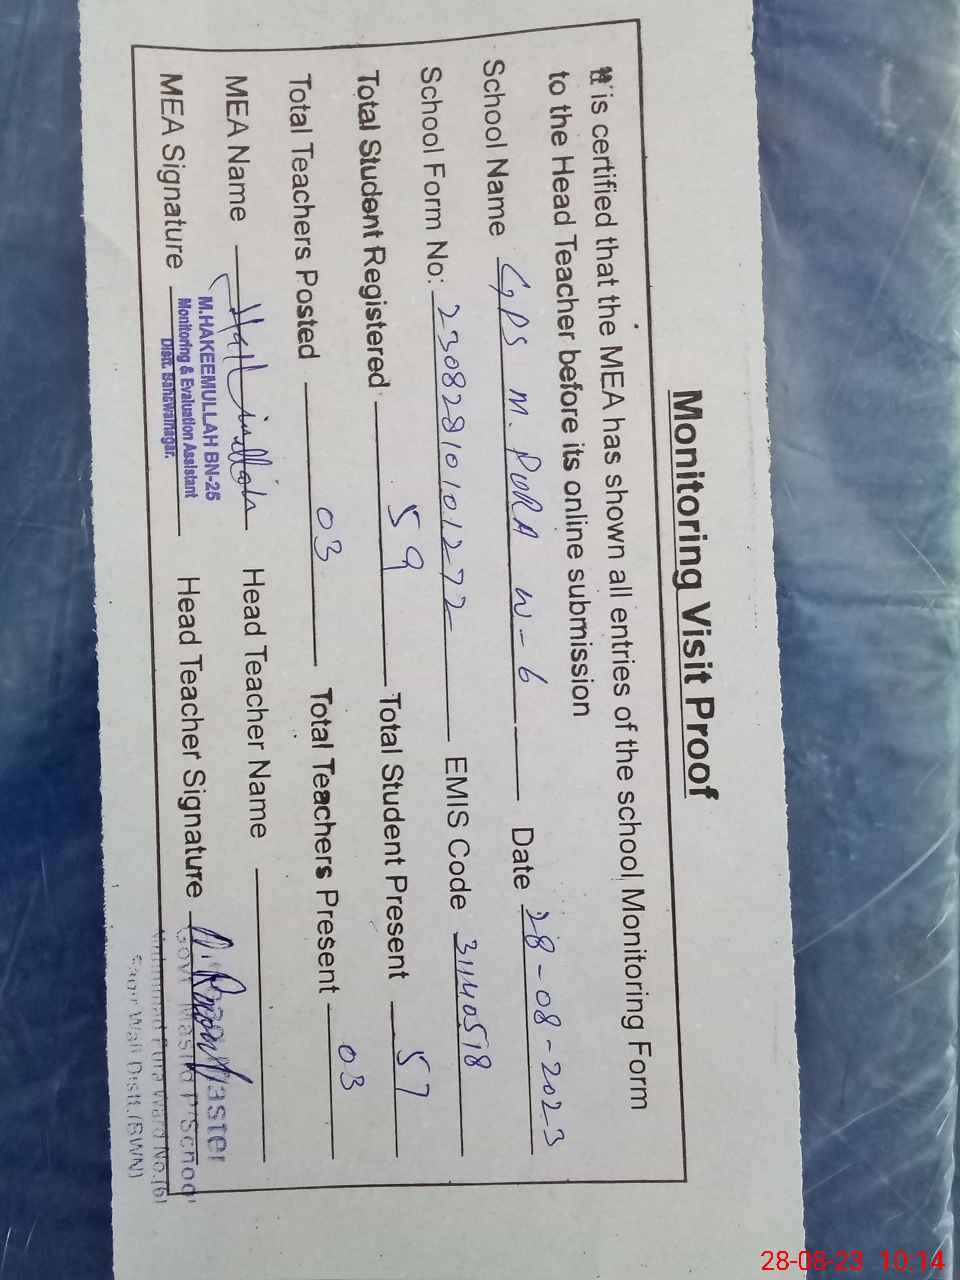 Monitoring Visit Proof
It is certified that the MEA has shown all entries of the school Monitoring Form
to the Head Teacher before its online submission
School Name GPS M. PURA W-6 Date 28-08-2023
School Form No: 23082810101272 EMIS Code 31140518
Total Student Registered 59 Total Student Present 57
Total Teachers Posted 03 Total Teachers Present 03
MEA Name Head Teacher Name
MEA Signature Head Teacher Signature
M.HAKEEMULLAH BN-25
Monitoring & Evaluation Assistant
Distt. Bahawalnagar.
Master
Govt. Masjid P/School
Muhammad Pura Ward No.(6)
Distt.(BWN)
28-08-23 10:14